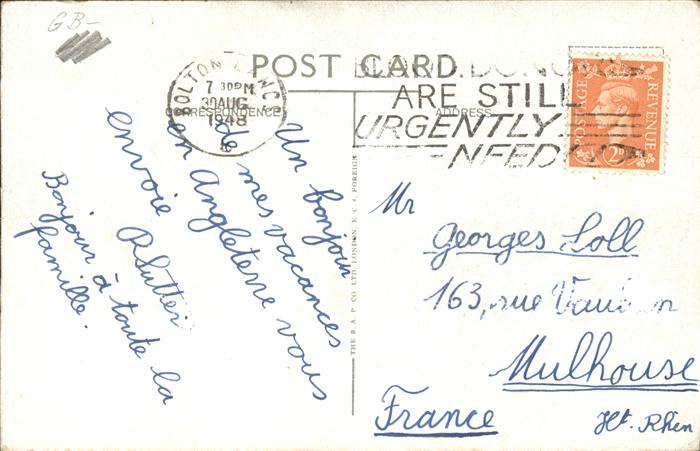 GB-
POST CARD
BOLTON LANCS
7 30PM
30 AUG
1948
BLOOD DONORS
ARE STILL
URGENTLY
NEEDED
POSTAGE
REVENUE
2D
CORRESPONDENCE
ADDRESS
Un bonjour
de mes vacances
en Angleterre vous
envoie P Sutter
Bonjour à toute la
famille.
THE R.A.P. CO. LTD. LONDON, E.C.4. FOREIGN
Mr
Georges Loll
163, rue Vauban
Mulhouse
France
Ht. Rhin